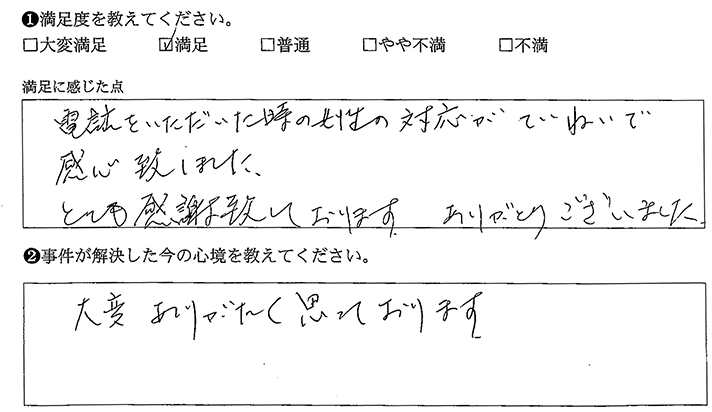 ❶満足度を教えてください。
□大変満足 ☑満足 □普通 □やや不満 □不満
満足に感じた点
電話をいただいた時の女性の対応がていねいで
感心致しました、
とても感謝致しております ありがとうございました、
❷事件が解決した今の心境を教えてください。
大変 ありがたく思っております